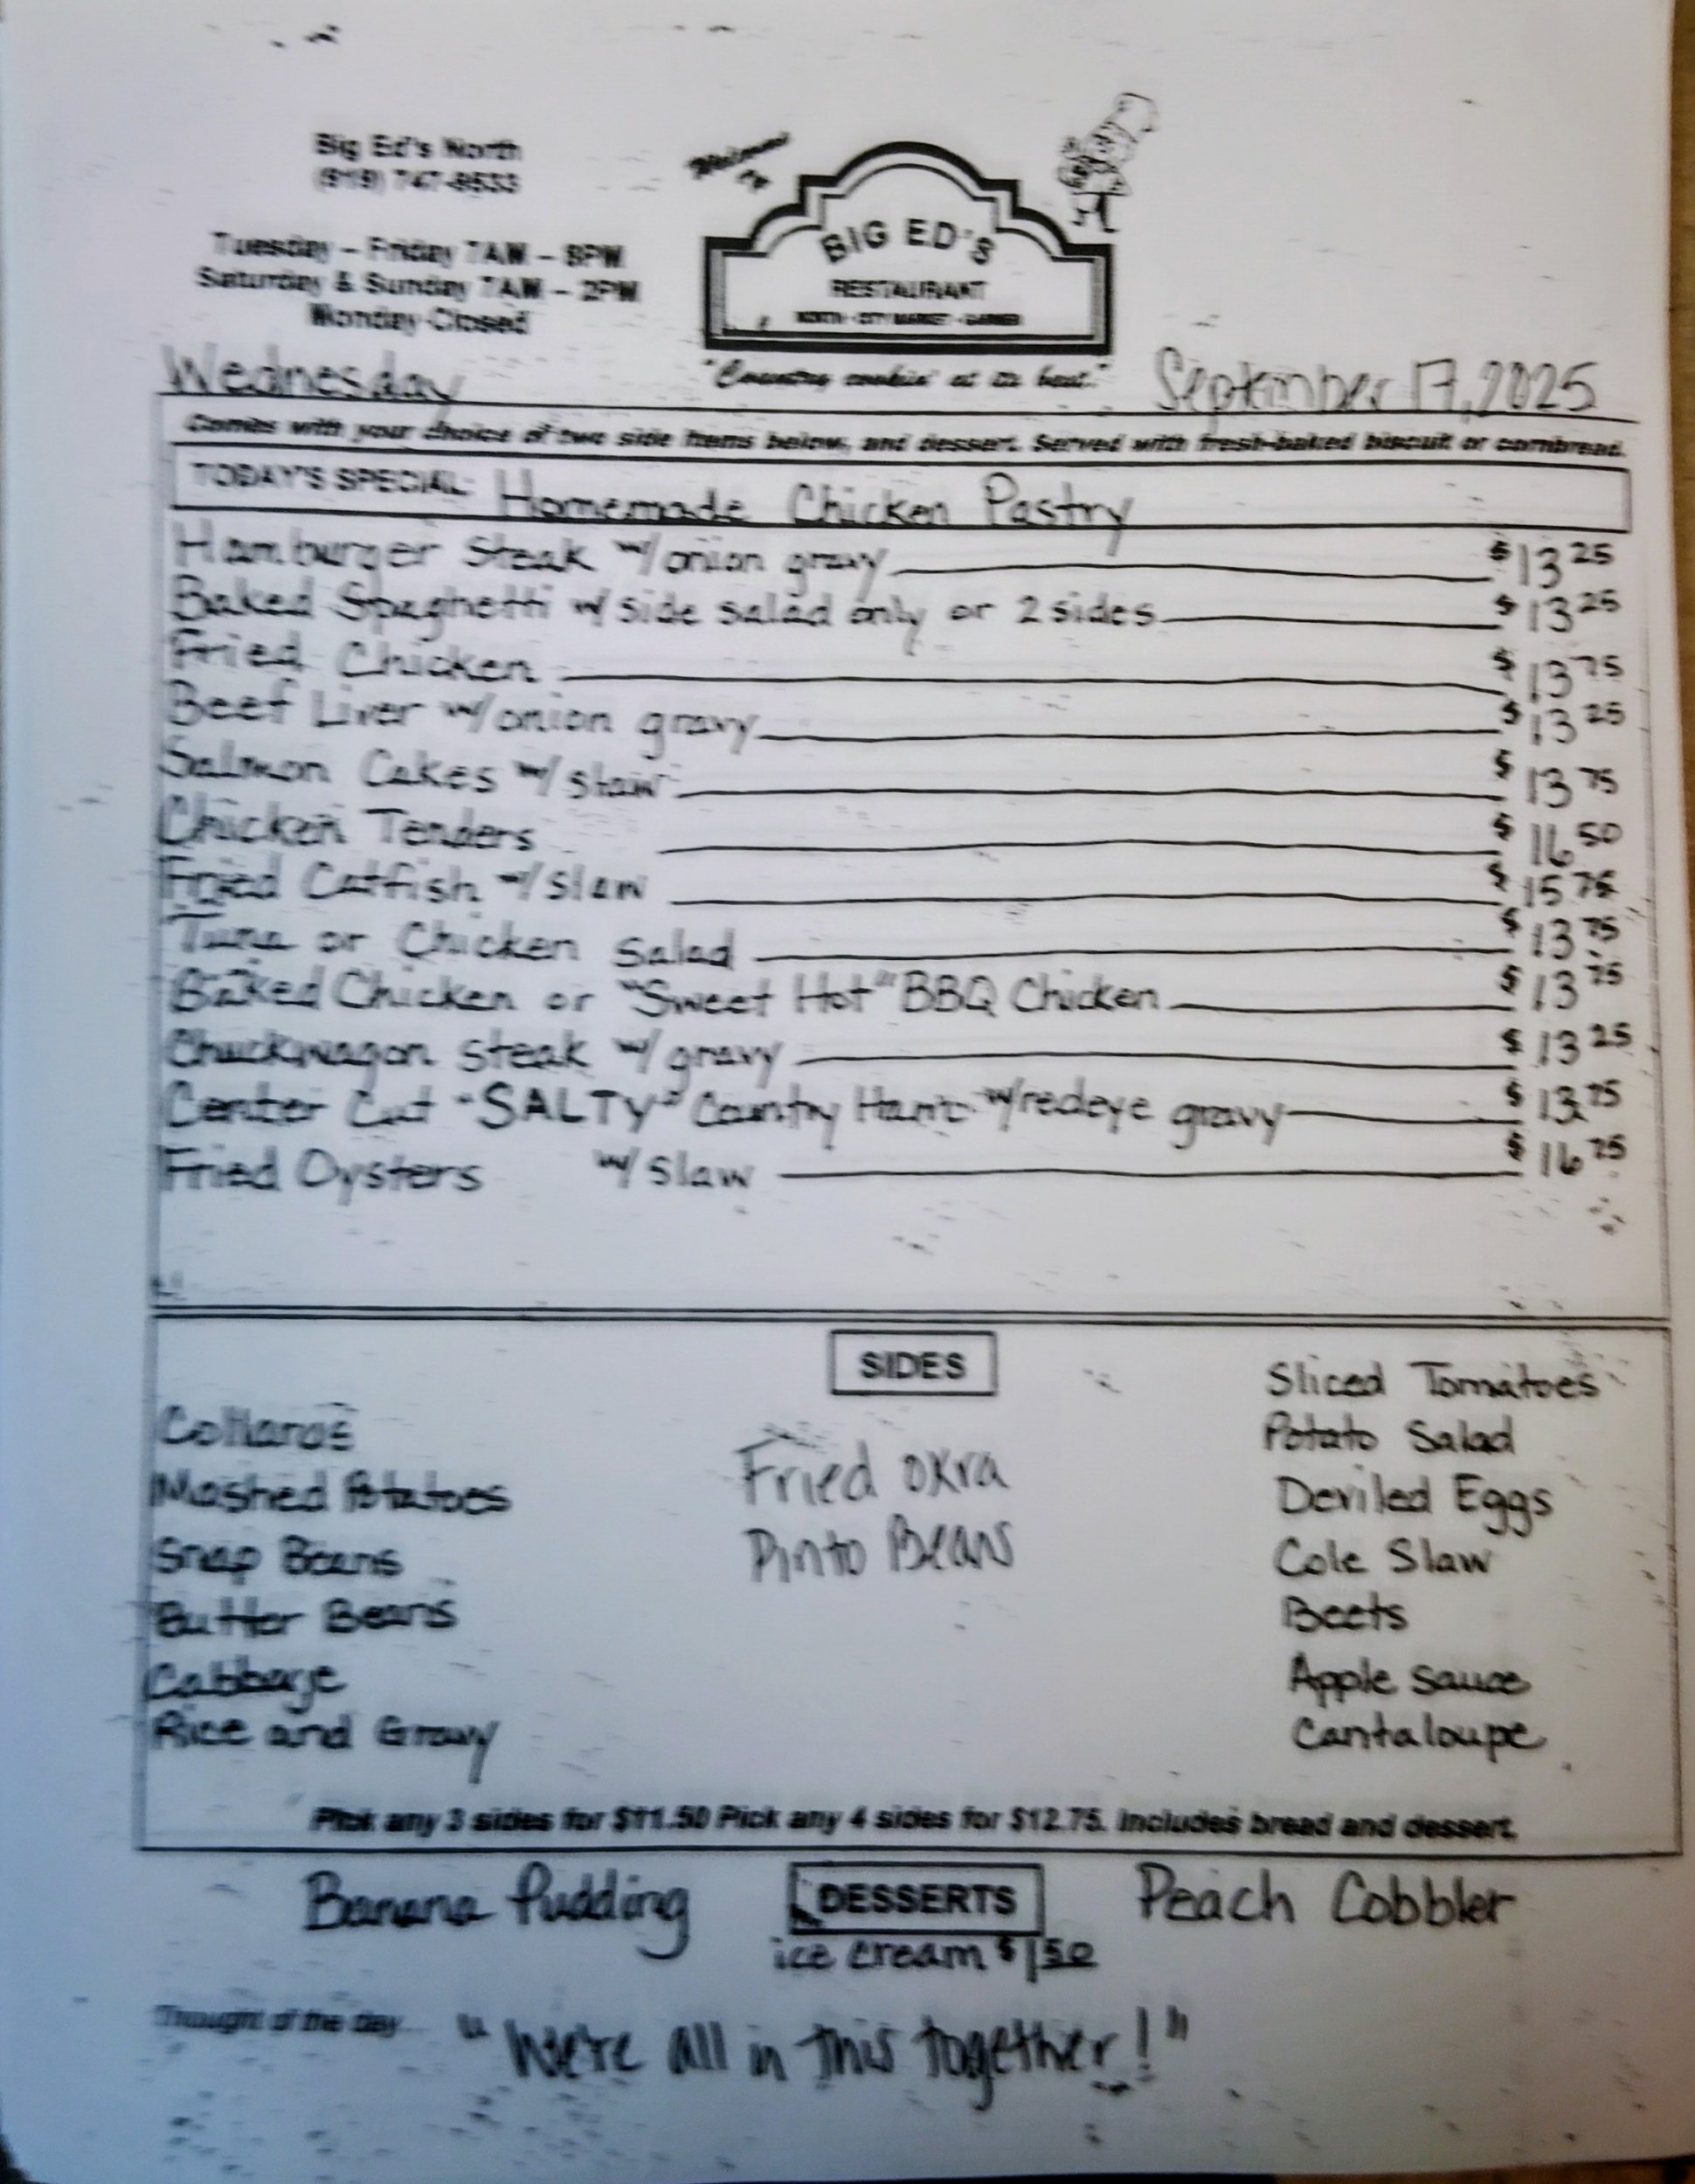 Big Ed's North
(919) 747-9533
Tuesday – Friday 7AM – 8PM
Saturday & Sunday 7AM – 2PM
Monday-Closed
Welcome to
BIG ED'S
RESTAURANT
NORTH - CITY MARKET - GARNER
"Country cookin' at its best."
Wednesday
September 17, 2025
Comes with your choice of two side items below, and dessert. Served with fresh-baked biscuit or cornbread.
TODAY'S SPECIAL: Homemade Chicken Pastry
Hamburger Steak w/ onion gravy $13 25
Baked Spaghetti w/ side salad only or 2 sides $13 25
Fried Chicken $13 75
Beef Liver w/ onion gravy $13 25
Salmon Cakes w/ slaw $13 75
Chicken Tenders $16 50
Fried Catfish w/ slaw $15 75
Tuna or Chicken salad $13 75
Baked Chicken or "Sweet Hot" BBQ Chicken $13 75
Chuckwagon steak w/ gravy $13 25
Center Cut "SALTY" Country Ham w/ redeye gravy $13 75
Fried Oysters w/ slaw $16 75
SIDES
Collards
Mashed Potatoes
Snap Beans
Butter Beans
Cabbage
Rice and Gravy
Fried okra
Pinto Beans
Sliced Tomatoes
Potato Salad
Deviled Eggs
Cole Slaw
Beets
Apple sauce
Cantaloupe
Pick any 3 sides for $11.50 Pick any 4 sides for $12.75. Includes bread and dessert.
Banana Pudding
DESSERTS
Peach Cobbler
ice cream $1 50
Thought of the day "We're all in this together!"